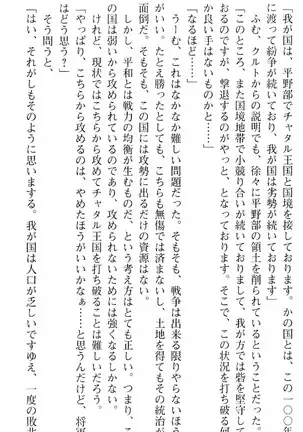 「我が国は、平野部でチャタル王国と国境を接しております。かの国とは、この一〇〇年
に渡って紛争が続いており、我が国は劣勢が続いております」
　ふむ、クルトからの説明でも、徐々に平野部の領土を削られているということだった。
「このところ、また国境地帯で小競り合いが続いておりまして、我が方では砦を堅守して
おるのですが、撃退するのがやっと、となっております。そこで、この状況を打破する何
か良い手はないものかと……」
「なるほど……」
　うーむ、これはなかなか難しい問題だった。そもそも、戦争は出来る限りやらないほう
がいい。たとえ勝ったとしても、こちらも無傷では済まないし、土地を得てもその統治が
面倒だ。そもそも、この国には攻勢に出るだけの資源はない。
　しかし、平和とは戦力の均衡が生むものだ、という考え方はとても正しい。つまり、こ
の国は弱いから攻められているのであり、攻められないためには強くなるしかない。
　けれど、現状ではこちらから攻めてチャタル王国を打ち破ることは難しいだろう。
「やっぱり、こちらから攻めるのは、やめたほうがいいかなぁ……と思うんだけど、将軍
はどう思う？」
　そう問うと、
「はい、それがしもそのように思いまする。我が国は人口が乏しいですゆえ、一度の敗北